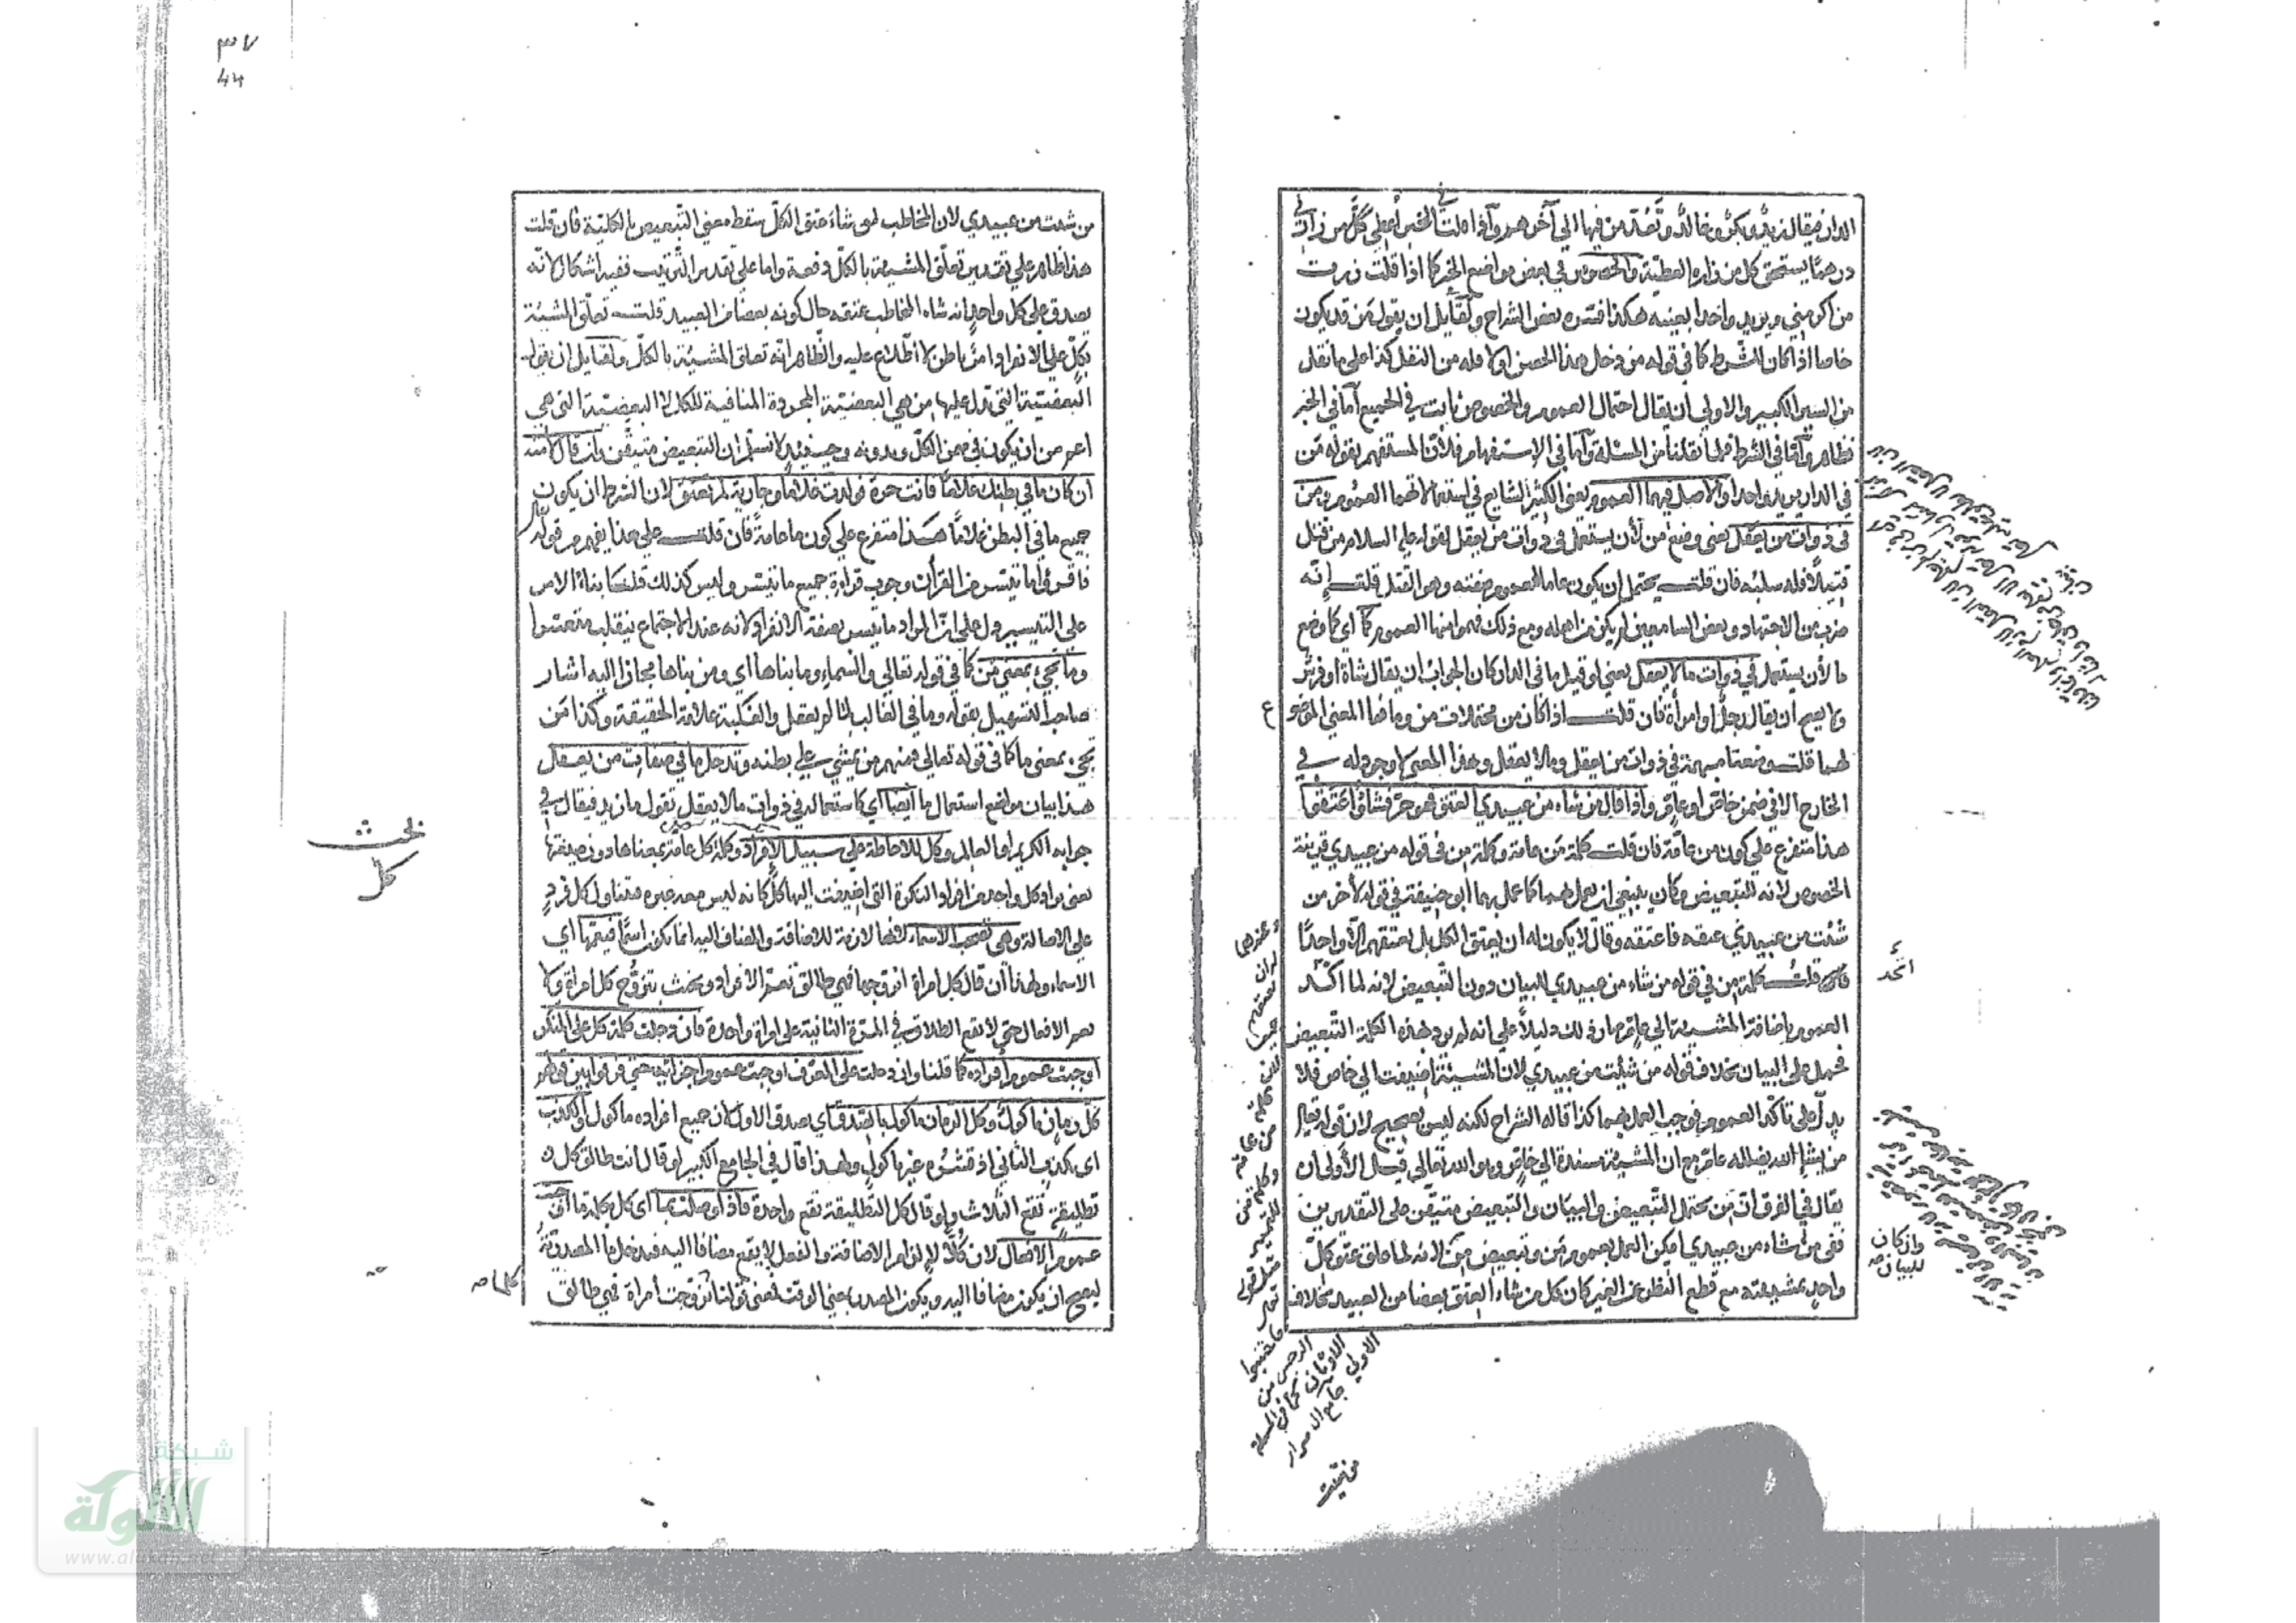 الدار فيقال زيد وبكر وخالد وتعد من فيها الى آخرهم واذا قلت في الخبر اعطي كل من زارني
درهما يستحق كل من زاره العطية والخصوص في بعض مواضع الخبر كما اذا قلت زرت
من اكرمني ويريد واحدا بعينه هكذا فسره بعض الشراح ولقايل ان يقول من قد يكون
خاصا اذا كان للشرط كما في قوله من دخل هذا الحصن اولا فله من النفل كذا على ما نقل
من السير الكبير والاولى ان يقال احتمال العموم والخصوص ثابت في الجميع اما في الخبر
فظاهر واما في الشرط فلما نقلنا من المسئلة واما في الاستفهام فلان المستفهم بقوله من
في الدار يريد واحدا والاصل فيهما العموم يعني الكثير الشايع في استعمالاتهما العموم ومن
في ذوات من يعقل يعني وضع من لأن يستعمل في ذوات من يعقل لقوله عليه السلام من قتل
قتيلا فله سلبه فان قلت يحتمل ان يكون عاما لعموم صفته وهو القتل قلت انه
ضرب من الاجتهاد وبعض السامعين لم يكن من اهله ومع ذلك فهموا منها العموم كما اي كما وضع
ما لأن يستعمل في ذوات ما لا يعقل يعني لو قيل ما في الدار كان الجواب ان يقال شاة او فرس
ولا يصح ان يقال رجل او امراة فان قلت اذا كان من محتملات من وما فما المعنى الموضوع
لهما قلت وضعتا مبهمة في ذوات من يعقل وما لا يعقل وهذا المعنى لا وجود له في
الخارج الا في ضمن خاص او عام واذا قال من شاء من عبيدي العتق فهو حر فشاؤا اعتقوا
هذا متفرع على كون من عامة فان قلت كلمة من عامة وكلمة من في قوله من عبيدي قرينة
الخصوص لانه للتبعيض وكان ينبغي ان يعمل بهما كما عمل بهما ابو حنيفة في قوله لآخر من
شئت من عبيدي عتقه فاعتقه وقال لا يكون له ان يعتق الكل بل يعتقهم الا واحدا
قلت كلمة من في قوله من شاء من عبيدي للبيان دون التبعيض لانه لما اكد
العموم باضافة المشيئة الى عام صار ذلك دليلا على انه لم يرد بهذه الكلمة التبعيض
فحمل على البيان بخلاف قوله من شئت من عبيدي لان المشيئة اضيفت الى خاص فلا
يدل على تأكد العموم فوجب العمل بهما كذا قاله الشراح لكنه ليس بصحيح لان قوله تعالى
من يشإ الله يضلله عام مع ان المشيئة مسندة الى خاص وهو الله تعالى قيل الأولى ان
يقال في الفرق ان من يحتمل التبعيض والبيان والتبعيض متيقن على التقديرين
ففي من شاء من عبيدي امكن العمل بعموم من وتبعيض من لانه لما علق عتق كل
واحد بمشيئته مع قطع النظر عن الغير كان كل من شاء العتق بعضا من العبيد بخلاف
اتحد
وان كان
للبيان صح
٣٧
44
من شئت من عبيدي لان المخاطب لو شاء عتق الكل سقط معنى التبعيض بالكلية فان قلت
هذا ظاهر على تقدير تعلق المشيئة بالكل دفعة واما على تقدير الترتيب ففيه اشكال لانه
يصدق على كل واحد انه شاء المخاطب عتقه حال كونه بعضا من العبيد قلت تعلق المشيئة
بكل على الانفراد امر باطن لا اطلاع عليه والظاهر انه تعلق المشيئة بالكل ولقايل ان يقول
البعضية التي تدل عليها من هي البعضية المجردة المنافية للكل لا البعضية التي هي
اعم من ان يكون في ضمن الكل وبدونه وحينئذ لا نسلم ان التبعيض متيقن وان قال لامته
ان كان ما في بطنك غلاما فانت حرة فولدت غلاما وجارية لم تعتق لان الشرط ان يكون
جميع ما في البطن غلاما هذا متفرع على كون ما عامة فان قلت على هذا يفهم من قوله تعالى
فاقرؤا ما تيسر من القرأن وجوب قراءة جميع ما تيسر وليس كذلك قلت بناء الامر
على التيسير دل على ان المراد ما تيسر بصفة الانفراد لانه عند الاجتماع ينقلب متعسرا
وما يجيء بمعنى من كما في قوله تعالى والسماء وما بناها اي ومن بناها مجازا اليه اشار
صاحب التسهيل بقوله وما في الغالب لما لم يعقل والغلبة علامة الحقيقة وكذا من
يجيء بمعنى ما كما في قوله تعالى فمنهم من يمشي على بطنه وتدخل ما في صفات من يعقل
هذا بيان مواضع استعمال ما ايضا اي كاستعماله في ذوات ما لا يعقل تقول ما زيد فيقال في
جوابه الكريم او العالم وكل للاحاطة على سبيل الافراد وكلمة كل عامة بمعناها دون صيغتها
يعني يراد كل واحد من افراد النكرة التي اضيفت اليها كل كانه ليس معه غيره فتناول كل فرد
على الاصالة وهي تصحب الاسماء لانها لازمة للاضافة والمضاف اليه انما يكون اسما فيعمها اي
الاسماء ولهذا ان قال كل امراة اتزوجها فهي طالق تعم الافراد ويحنث بتزوج كل امراة ولا
يعم الافعال حتى لا يقع الطلاق في المرة الثانية على امراة واحدة فان دخلت كلمة كل على المنكر
اوجبت عموم افراده كما قلنا وان دخلت على المعرف اوجبت عموم اجزائه حتى فرقوا بين قولهم
كل رمان ماكول وكل الرمان ماكول بالصدق اي بصدق الاول لان جميع افراده ماكول والكذب
اي بكذب الثاني اذ قشره غير ماكول ولهذا قال في الجامع الكبير لو قال انت طالق كل
تطليقة تقع الثلاث ولو قال كل التطليقة تقع واحدة فاذا وصلت بما اي كل بكلمة ما اوجبت
عموم الافعال لان كلا لازم الاضافة والفعل لا يقع مضافا اليه فيدخل ما المصدرية
ليصح ان يكون مضافا اليه ويكون المصدر بمعنى الوقت فمعنى قولنا تزوجت امراة فهي طالق
بحث
كل
كلما صح
شبكة
الألوكة
www.alukah.net